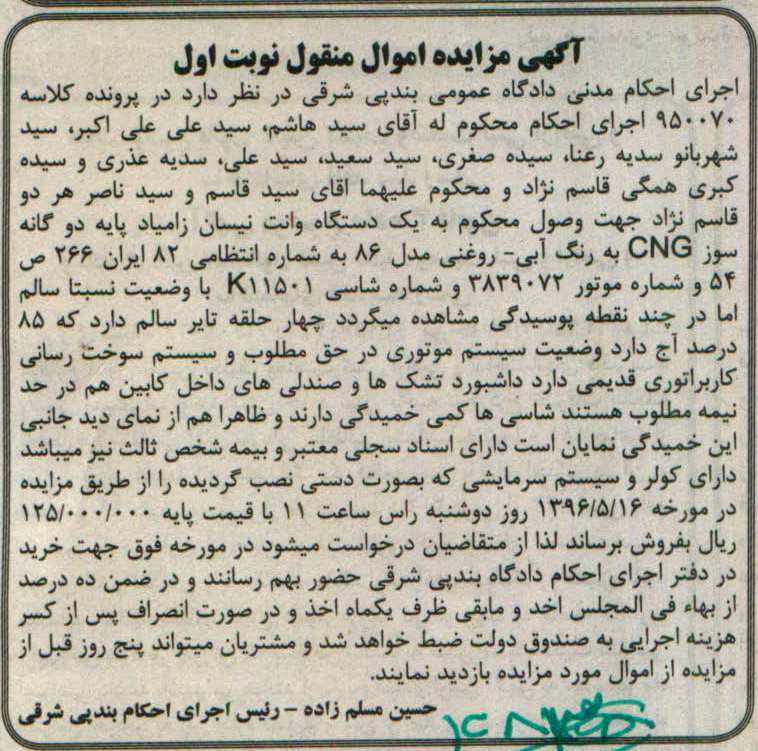 آگهی مزایده اموال منقول نوبت اول
اجرای احکام مدنی دادگاه عمومی بندپی شرقی در نظر دارد در پرونده کلاسه
۹۵۰۰۷۰ اجرای احکام محکوم له آقای سید هاشم، سید علی علی اکبر، سید
شهربانو سدیه رعنا، سیده صغری، سید سعید، سید علی، سدیه عذری و سیده
کبری همگی قاسم نژاد و محکوم علیهما اقای سید قاسم و سید ناصر هر دو
قاسم نژاد جهت وصول محکوم به یک دستگاه وانت نیسان زامیاد پایه دو گانه
سوز CNG به رنگ آبی- روغنی مدل ۸۶ به شماره انتظامی ۸۲ ایران ۲۶۶ ص
۵۴ و شماره موتور ۳۸۳۹۰۷۲ و شماره شاسی K۱۱۵۰۱ با وضعیت نسبتا سالم
اما در چند نقطه پوسیدگی مشاهده میگردد چهار حلقه تایر سالم دارد که ۸۵
درصد آج دارد وضعیت سیستم موتوری در حق مطلوب و سیستم سوخت رسانی
کاربراتوری قدیمی دارد داشبورد تشک ها و صندلی های داخل کابین هم در حد
نیمه مطلوب هستند شاسی ها کمی خمیدگی دارند و ظاهرا هم از نمای دید جانبی
این خمیدگی نمایان است دارای اسناد سجلی معتبر و بیمه شخص ثالث نیز میباشد
دارای کولر و سیستم سرمایشی که بصورت دستی نصب گردیده را از طریق مزایده
در مورخه ۱۳۹۶/۵/۱۶ روز دوشنبه راس ساعت ۱۱ با قیمت پایه ۱۲۵/۰۰۰/۰۰۰
ریال بفروش برساند لذا از متقاضیان درخواست میشود در مورخه فوق جهت خرید
در دفتر اجرای احکام دادگاه بندپی شرقی حضور بهم رسانند و در ضمن ده درصد
از بهاء فی المجلس اخد و مابقی ظرف یکماه اخذ و در صورت انصراف پس از کسر
هزینه اجرایی به صندوق دولت ضبط خواهد شد و مشتریان میتواند پنج روز قبل از
مزایده از اموال مورد مزایده بازدید نمایند.
حسین مسلم زاده - رئیس اجرای احکام بندپی شرقی